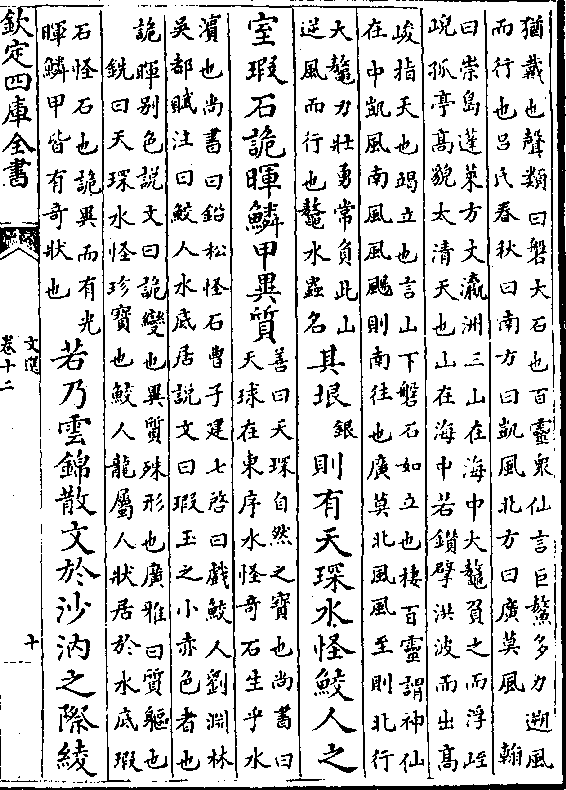 猶戴也聲類曰磐大石也百靈衆仙言巨鰲多力遡風
而行也吕氏春秋曰南方曰凱風北方曰廣莫風 翰
曰崇島蓬萊方丈瀛洲三山在海中大鼇負之而浮峌
峴孤亭髙貌太清天也山在海中若鑚擘洪波而出髙
峻指天也竭立也言山下磐石如立也棲百靈謂神仙
在中凱風南風風颺則南往也廣莫北風風至則北行
大鼇力壯勇常負此山
逆風而行也鼇水蟲名
其垠
銀
則有天琛水怪鮫人之
室瑕石詭暉鱗甲異質
善曰天琛自然之寶也尚書曰
天球在東序水怪竒石生乎水
濱也尚書曰鉛松怪石曹子建七啓曰戲鮫人劉淵林
吳都賦注曰鮫人水底居説文曰瑕玉之小赤色者也
詭暉别色説文曰詭變也異質殊形也廣雅曰質軀也
銑曰天琛水怪珍寶也鮫人龍屬人狀居於水底瑕
石怪石也詭異而有光
暉鱗甲皆有竒狀也
若乃雲錦散文於沙汭之際綾
欽定四庫全書
文選
卷十二
十